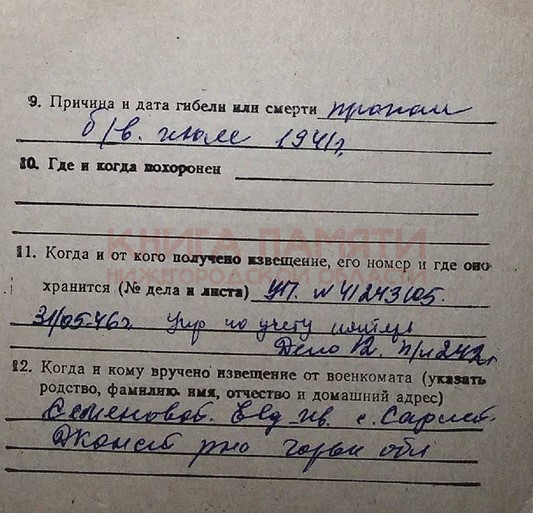 9. Причина и дата гибели или смерти пропал
б/в. июле 1941г.
10. Где и когда похоронен
КНИГА ПАМЯТИ
НИЖЕГОРОДСКОЙ ОБЛАСТИ
11. Когда и от кого получено извещение, его номер и где оно
хранится (№ дела и листа) УП. N 41243/05.
31/05-46г. Упр по учету
Дело 12. п/л 242г
12. Когда и кому вручено извещение от военкомата (указать
родство, фамилию, имя, отчество и домашний адрес)
Семеновой. Евд. Ив. с.
рно Горьк обл